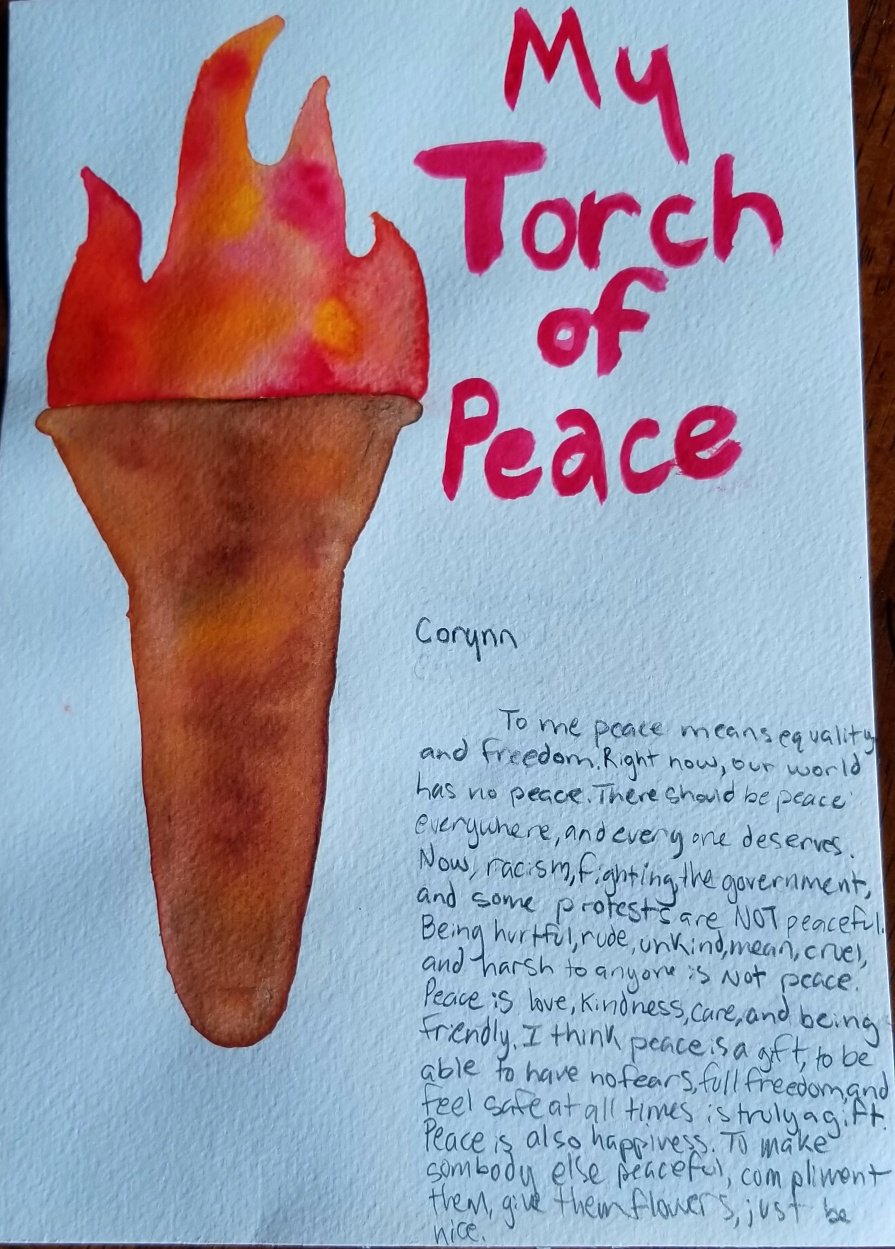 My
Torch
of
Peace
Corynn
To me peace means equality
and freedom. Right now, our world
has no peace. There should be peace
everywhere, and every one deserves.
Now, racism, fighting, the government,
and some protests are NOT peaceful.
Being hurtful, rude, unkind, mean, cruel,
and harsh to anyone is Not peace.
Peace is love, kindness, care, and being
friendly. I think peace is a gift, to be
able to have no fears, full freedom, and
feel safe at all times is truly a gift.
Peace is also happiness. To make
sombody else peaceful, compliment
them, give them flowers, just be
nice.